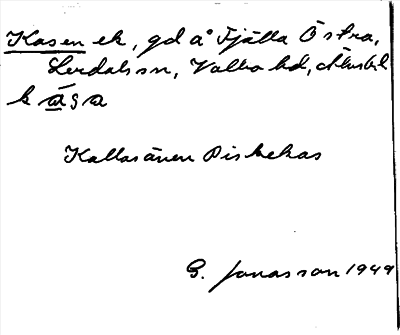 Kasen ek, gd å Fjälla Östra,
Lerdals sn, Valbo hd, Älvsb. l.
kása
Kallas även Piskekas
G. Jonasson 1949